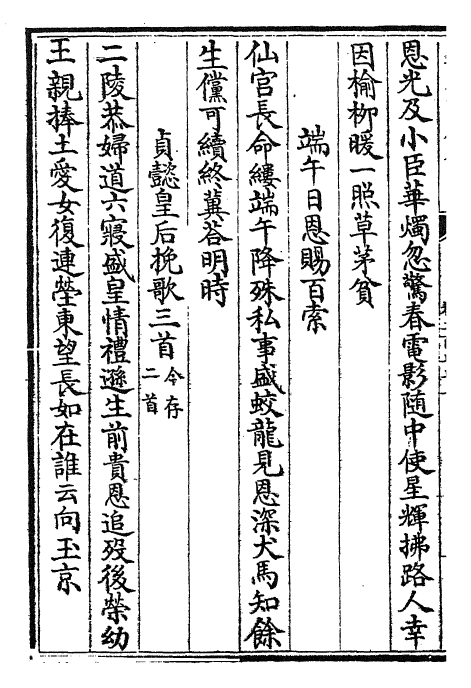 恩光及小臣華燭忽驚春電影隨中使星輝拂路人幸
因榆柳暖一照草茅貧
端午日恩賜百索
仙官長命縷端午降殊私事盛蛟龍見恩深犬馬知餘
生儻可續終冀荅明時
貞懿皇后挽歌三首今存二首
二陵恭婦道六寢盛皇情禮遜生前貴恩追歿後榮幼
王親捧土愛女復連塋東望長如在誰云向玉京